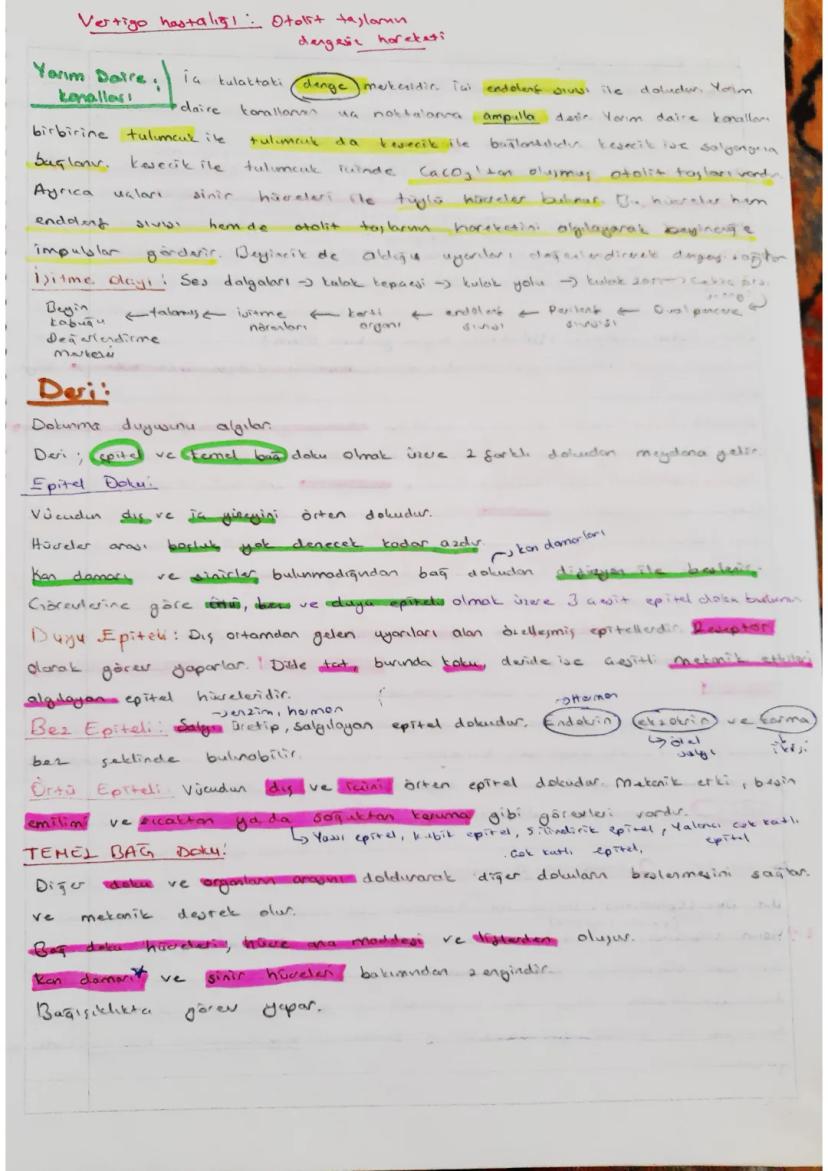 Vertigo hastalığı: Otolit taşlarının
dengesiz hareketi
Yarım Daire: kanalları
İç kulaktaki denge merkezidir. İçi endolenf sıvısı ile doludur. Yarım
daire kanallarının uç noktalarına ampulla denir. Yarım daire kanalları
birbirine tulumcuk ile tulumcuk da kesecik ile bağlantılıdır. kesecik ise salyangoza
bağlanır. kesecik ile tulumcuk içinde CaCO3'tan oluşmuş otolit taşları vardır.
Ayrıca uçları sinir hücreleri ile tüylü hücreler bulunur. Bu hücreler hem
endolenf sıvısı hem de otolit taşlarının hareketini algılayarak beyinciğe
impulslar gönderir. Beyincik de aldığı uyarıları değerlendirerek dengeyi sağlar
İşitme olayı: Ses dalgaları → kulak kepçesi → kulak yolu → kulak zarı →
Beyin kabuğu ← talamus ← işitme nöronları ← korti organı ← endolenf sıvısı ← Perilenf sıvısı ← Oval pencere ←
Değerlendirme
merkezi
Deri:
Dokunma duyusunu algılar.
Deri; epitel ve temel bağ doku olmak üzere 2 farklı dokudan meydana gelir.
Epitel Doku:
Vücudun dış ve iç yüzeyini örten dokudur.
Hücreler arası boşluk yok denecek kadar azdır.
→ kan damarları
Kan damarı ve sinirler bulunmadığından bağ dokudan difüzyon ile beslenir.
Görevlerine göre örtü, bez ve duyu epiteli olmak üzere 3 çeşit epitel doku bulunur
Duyu Epiteli: Dış ortamdan gelen uyarıları alan özelleşmiş epitellerdir. Reseptör
olarak görev yaparlar. ! Dilde tat, burunda koku, deride ise çeşitli mekanik etkileri
algılayan epitel hücreleridir.
→ enzim, hormon
→ Hormon
Bez Epiteli: Salgı üretip, salgılayan epitel dokudur. Endokrin ekzokrin ve karma
↳ özel salgı
ikisi
bez şeklinde bulunabilir.
Örtü Epiteli Vücudun dış ve içini örten epitel dokudur. Mekanik etki, besin
emilimi ve sıcaktan ya da soğuktan koruma gibi görevleri vardır.
↳ Yassı epitel, kübik epitel, Silindirik epitel, Yalancı çok katlı epitel
. Çok katlı epitel,
TEMEL BAĞ Doku:
Diğer doku ve organların arasını doldurarak diğer dokuların beslenmesini sağlar.
ve mekanik destek olur.
Bağ doku hücreleri, hücre ara maddesi ve liflerden oluşur.
Kan damarı* ve sinir hücreleri bakımından zengindir.
Bağışıklıkta görev yapar.